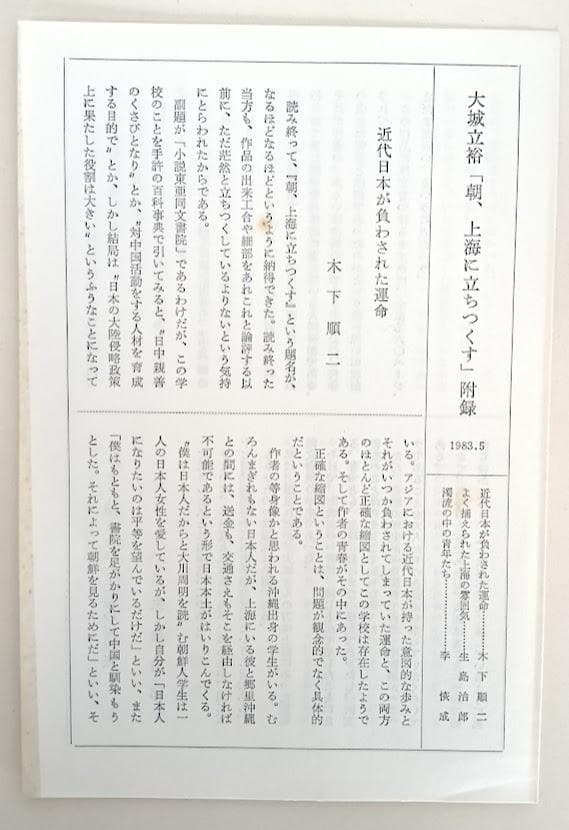 大城立裕「朝、上海に立ちつくす」附録
1983.5
近代日本が負わされた運命…………木下順二
よく捕えられた上海の雰囲気………生島治郎
濁流の中の青年たち…………李恢成
近代日本が負わされた運命
木下順二
読み終って、『朝、上海に立ちつくす』という題名が、
なるほどなるほどというように納得できた。読み終った
当方も、作品の出来工合や細部をあれこれと論評する以
前に、ただ茫然と立ちつくしているよりないという気持
にとらわれたからである。
副題が「小説東亜同文書院」であるわけだが、この学
校のことを手許の百科事典で引いてみると、〝日中親善
のくさびとなり〟とか、〝対中国活動をする人材を育成
する目的で〟とか、しかし結局は〝日本の大陸侵略政策
上に果たした役割は大きい〟というふうなことになって
いる。アジアにおける近代日本が持った意図的な歩みと
それがいつか負わされてしまっていた運命と、この両方
のほとんど正確な縮図としてこの学校は存在したようで
ある。そして作者の青春がその中にあった。
正確な縮図ということは、問題が観念的でなく具体的
だということである。
作者の等身像かと思われる沖縄出身の学生がいる。む
ろんまぎれもない日本人だが、上海にいる彼と郷里沖縄
との間には、送金も、交通さえもそこを経由しなければ
不可能であるという形で日本本土がはいりこんでくる。
〝僕は日本人だからと大川周明を読〟む朝鮮人学生は一
人の日本人女性を愛しているが、しかし自分が「日本人
になりたいのは平等を望んでいるだけだ」といい、また
「僕はもともと、書院を足がかりにして中国と馴染もう
とした。それによって朝鮮を見るためにだ」といい、そ